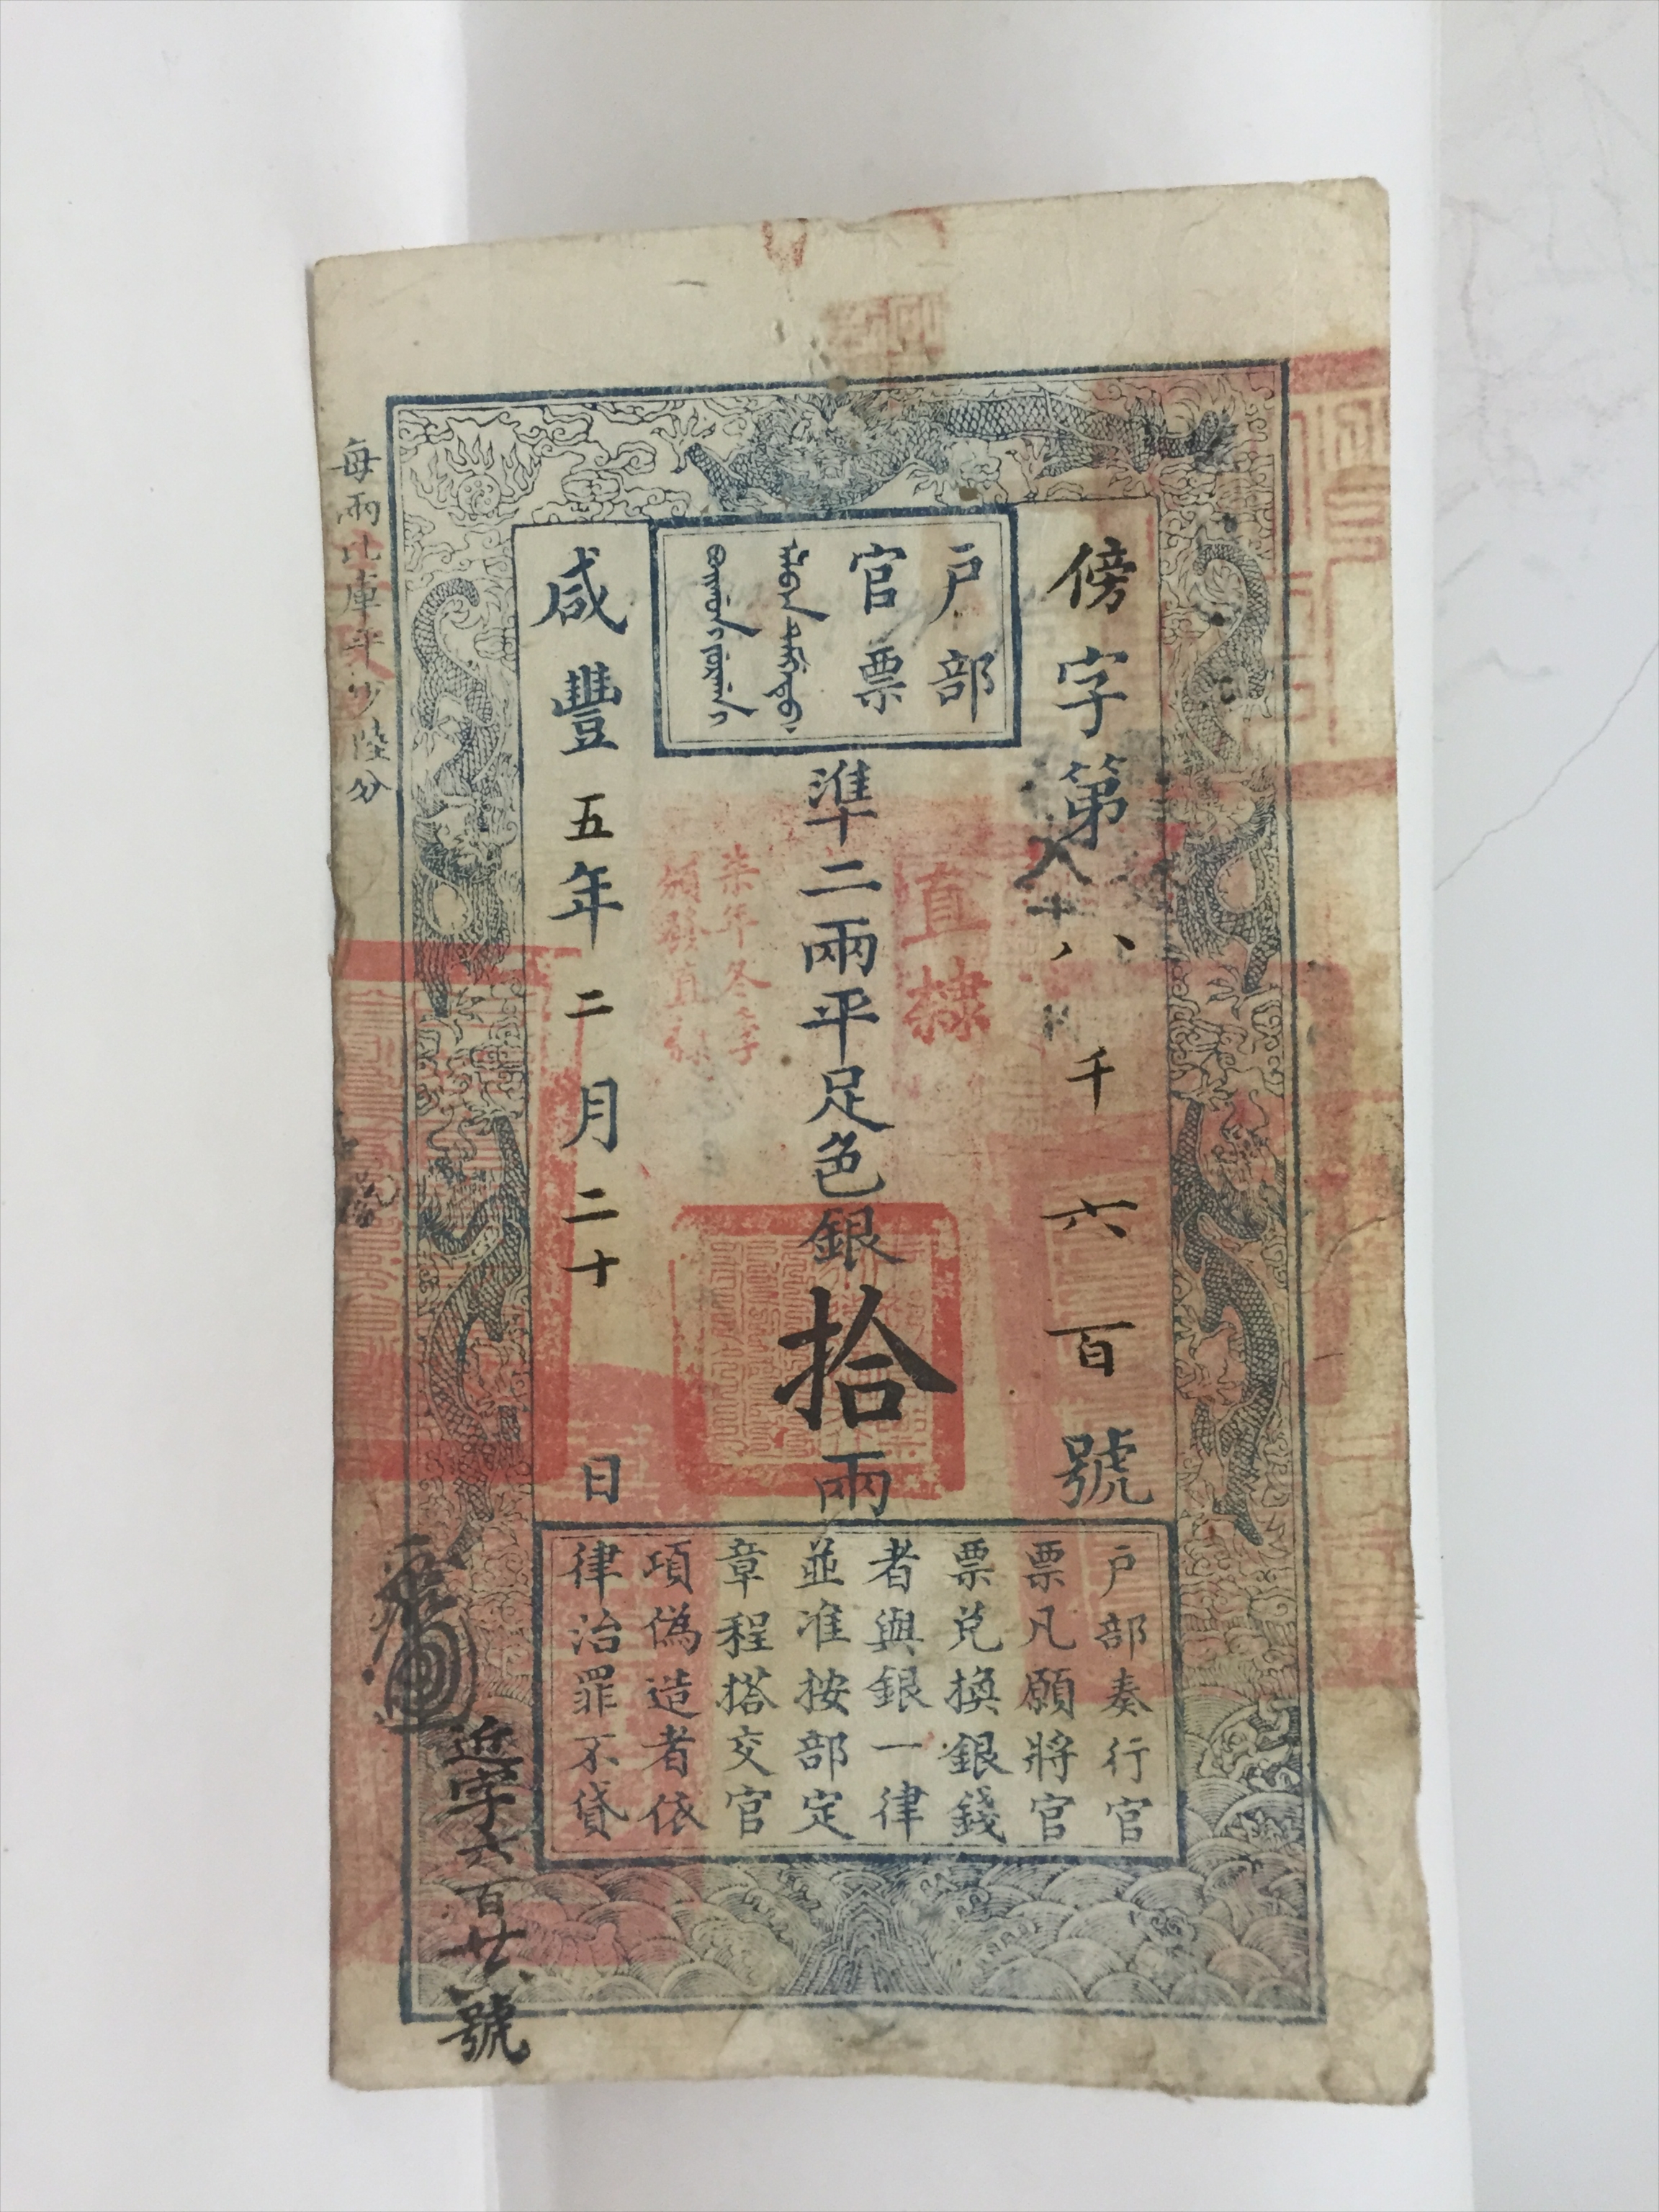 傍字第八千六百號
戶部
官票
準二兩平足色銀拾兩
直隸
柒年冬季
頒發直隸
咸豐五年二月二十日
戶部奏行官
票凡願將官
票兌換銀錢
者與銀一律
並准按部定
章程搭交官
項偽造者依
律治罪不貸
每兩比庫平少陸分
近字六百廿八號